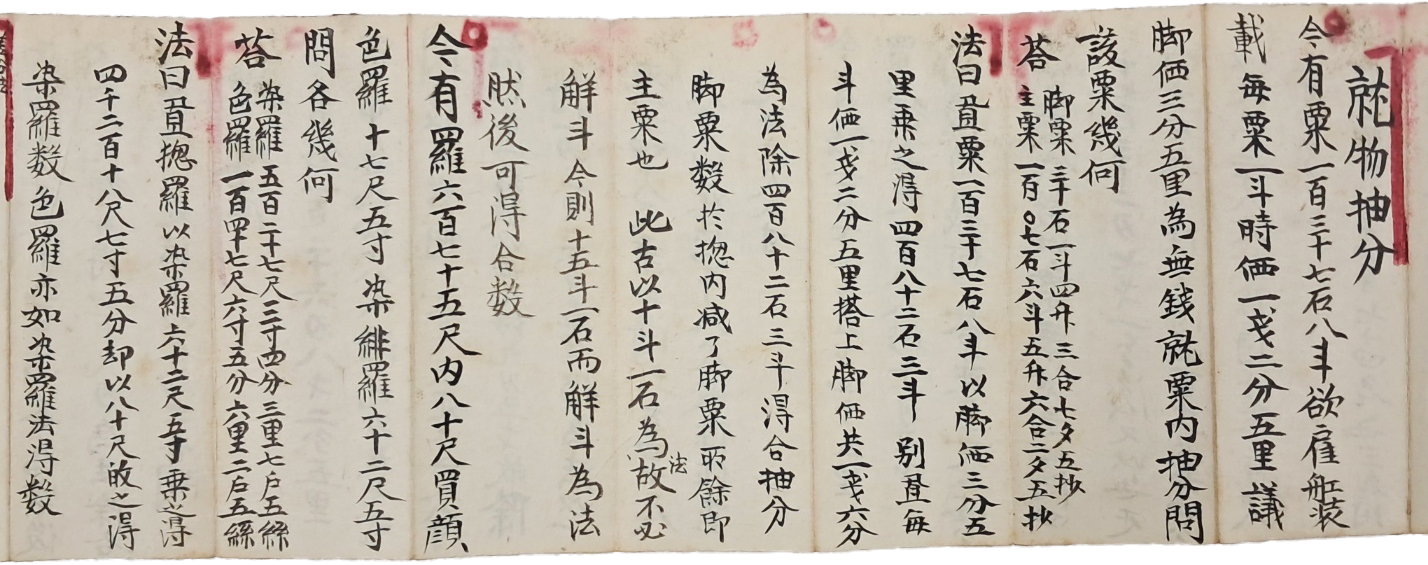 就物抽分
今有粟一百三十七石八斗欲雇舡装
載每粟一斗時価一戔二分五里議
脚価三分五里為無錢就粟内抽分問
該粟幾何
荅 脚粟三十石一斗四升三合七夕五抄
主粟一百〇七石六斗五升六合二夕五抄
法曰置粟一百三十七石八斗以脚価三分五
里乗之淂四百八十二石三斗 別置每
斗価一戔二分五里搭上脚価共一戔六分
為法除四百八十二石三斗淂合抽分
脚粟数扵揔内减了脚粟所餘即
主粟也 此古以十斗一石為法故不必
觧斗今則十五斗一石而觧斗為法
然後可淂合数
今有羅六百七十五尺内八十尺買顔
色羅十七尺五寸染緋羅六十二尺五寸
問各幾何
荅 染羅五百二十七尺三寸四分三里七戶五絲
色羅一百四十七尺六寸五分六里二戶五絲
法曰置揔羅以染羅六十二尺五寸乗之淂
四千二百十八尺七寸五分却以八十尺㱕之淂
染羅数色羅亦如染羅法淂数